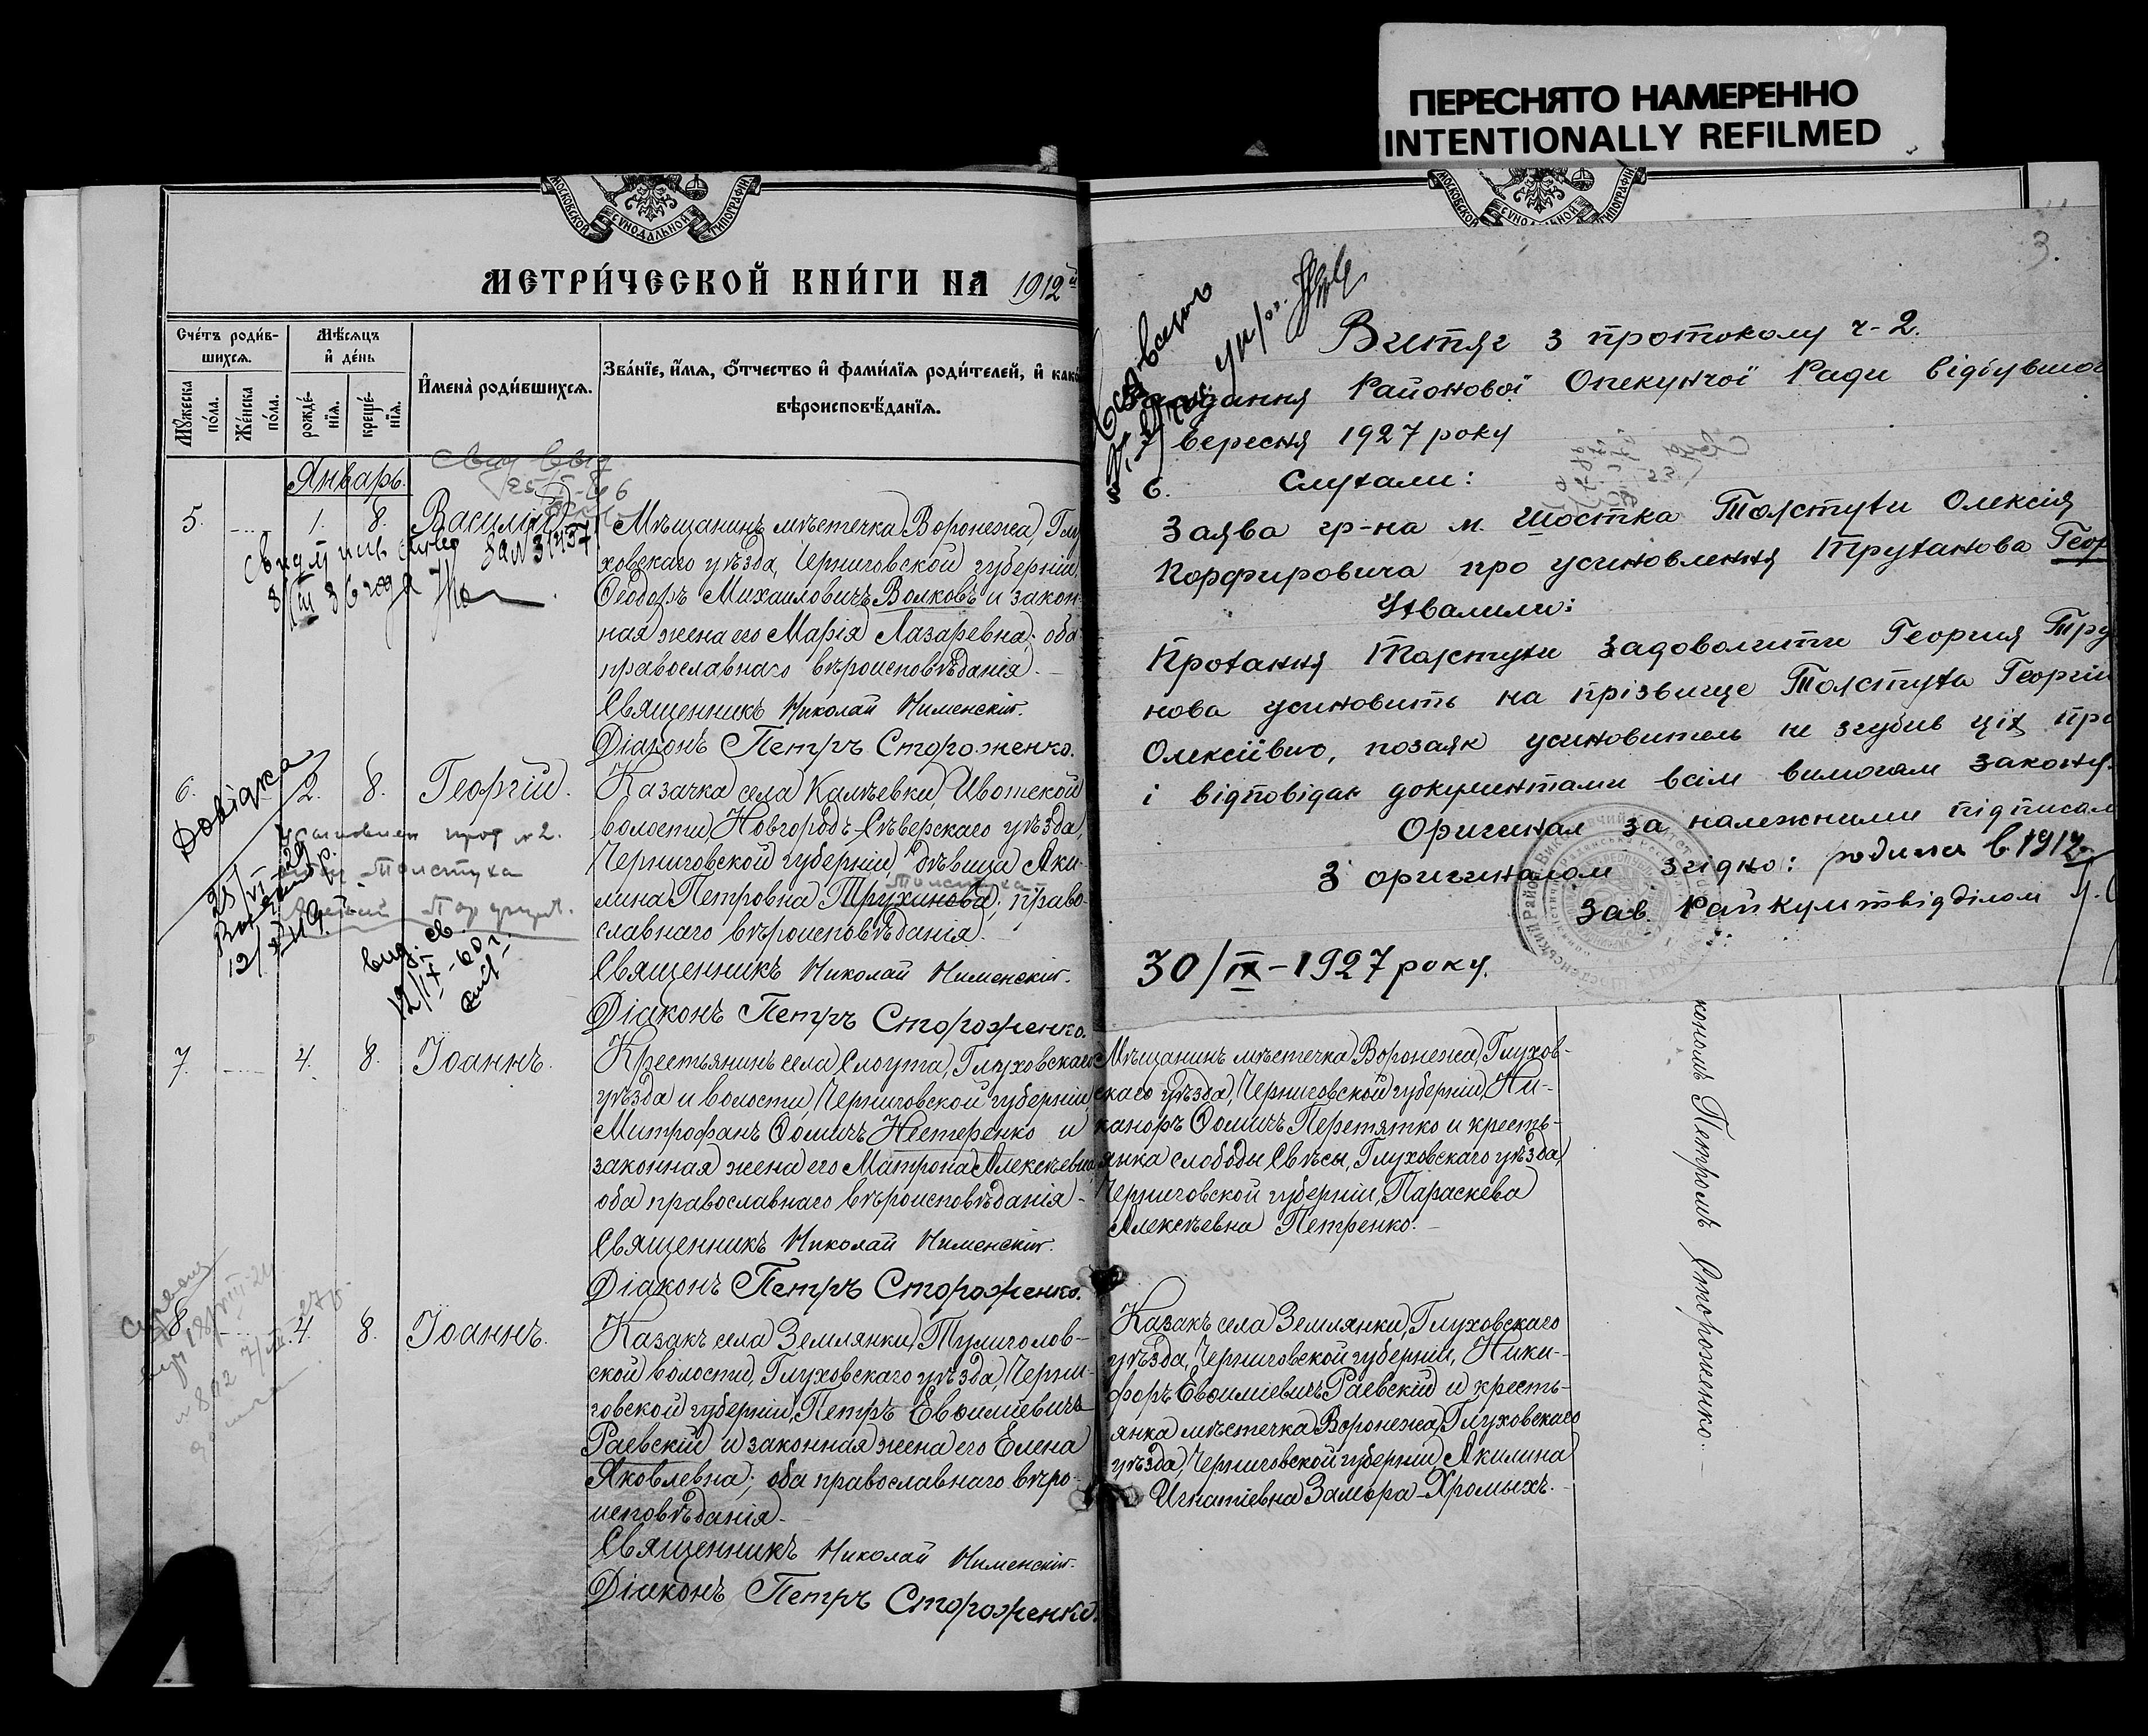 ПЕРЕСНЯТО НАМЕРЕННО
INTENTIONALLY REFILMED
МОСКОВСКОЙ СѴНОДАЛЬНОЙ ТИПОГРАФІИ
МЕТРИ́ЧЕСКОЙ КНИ́ГИ НА 1912й
Сче́тъ роди́в-
шихсѧ.
Мѣ́сѧцъ
и҆ де́нь
Мꙋ́жеска
по́ла.
Же́нска
по́ла.
рожде́-
нїѧ.
креще́-
нїѧ.
И҆мена̀ роди́вшихсѧ.
Зва́нїе, и҆́мѧ, ѻ҆́тчество и҆ фами́лїѧ роди́телей, и҆ како
вѣроисповѣ́данїѧ.
Январь.
5. 1. 8. Василій
Мѣщанинъ мѣстечка Воронежа, Глу
ховскаго уѣзда, Черниговской губерніи,
Ѳеодоръ Михаиловичъ Волковъ и закон-
ная жена его Марія Лазаревна; оба
православнаго вѣроисповѣданія.
Священникъ Николай Нименскій.
Діаконъ Петръ Стороженко.
6. 2. 8. Георгій.
Казачка села Калѣевки, Ивотской
волости, Новгородъ-Сѣверскаго уѣзда,
Черниговской губерніи, дѣвица Аки-
лина Петровна Труханова; право-
славнаго вѣроисповѣданія.
Священникъ Николай Нименскій.
Діаконъ Петръ Стороженко.
Довідка
прот №2.
Толстуха
Толстуха
вид. св.
12/IX-60 г.
7. 4. 8. Іоаннъ.
Крестьянинъ села Слоута, Глуховскаго
уѣзда и волости, Черниговской губерніи,
Митрофанъ Ѳомичъ Нестеренко и
законная жена его Матрона Алексѣевна
оба православнаго вѣроисповѣданія.
Священникъ Николай Нименскій.
Діаконъ Петръ Стороженко.
8. 4. 8. Іоаннъ.
Казакъ села Землянки, Тулиголов-
ской волости, Глуховскаго уѣзда, Черни-
говской губерніи, Петръ Евѳиміевичъ
Раевскій и законная жена его Елена
Яковлевна; оба православнаго вѣро-
исповѣданія.
Священникъ Николай Нименскій.
Діаконъ Петръ Стороженко.
МОСКОВСКОЙ СѴНОДАЛЬНОЙ ТИПОГРАФІИ
3.
Витяг з протоколу ч-2.
Засідання Районової Опекунчої Ради відбувшог
7 вересня 1927 року
§ 6. Слухали:
Заява гр-на м. Шостка Толстухи Олексія
Порфировича про усиновлення Труханова Геор
Ухвалили:
Прохання Толстухи задоволити Георгия Тру
нова усиновить на прізвище Толстуха Георгій
Олексіївич, позаяк усиновитель не згубив ціх пра
і відповідає документами всім вимогам закону.
Оригинал за належними підписам
З оригиналом згідно: родился в 1912
Зав. Райкультвідділом
30/IX-1927 року.
Мѣщанинъ мѣстечка Воронежа, Глухов-
скаго уѣзда, Черниговской губерніи, Ни-
каноръ Ѳомичъ Перетятко и кресть-
янка слободы Свѣсы, Глуховскаго уѣзда,
Черниговской губерніи, Параскева
Алексѣевна Петренко.
Казакъ села Землянки, Глуховскаго
уѣзда, Черниговской губерніи, Ники-
форъ Евѳиміевичъ Раевскій и кресть-
янка мѣстечка Воронежа, Глуховскаго
уѣзда, Черниговской губерніи, Акилина
Игнатіевна Замора-Хромыхъ.
кономъ Петромъ Стороженко.